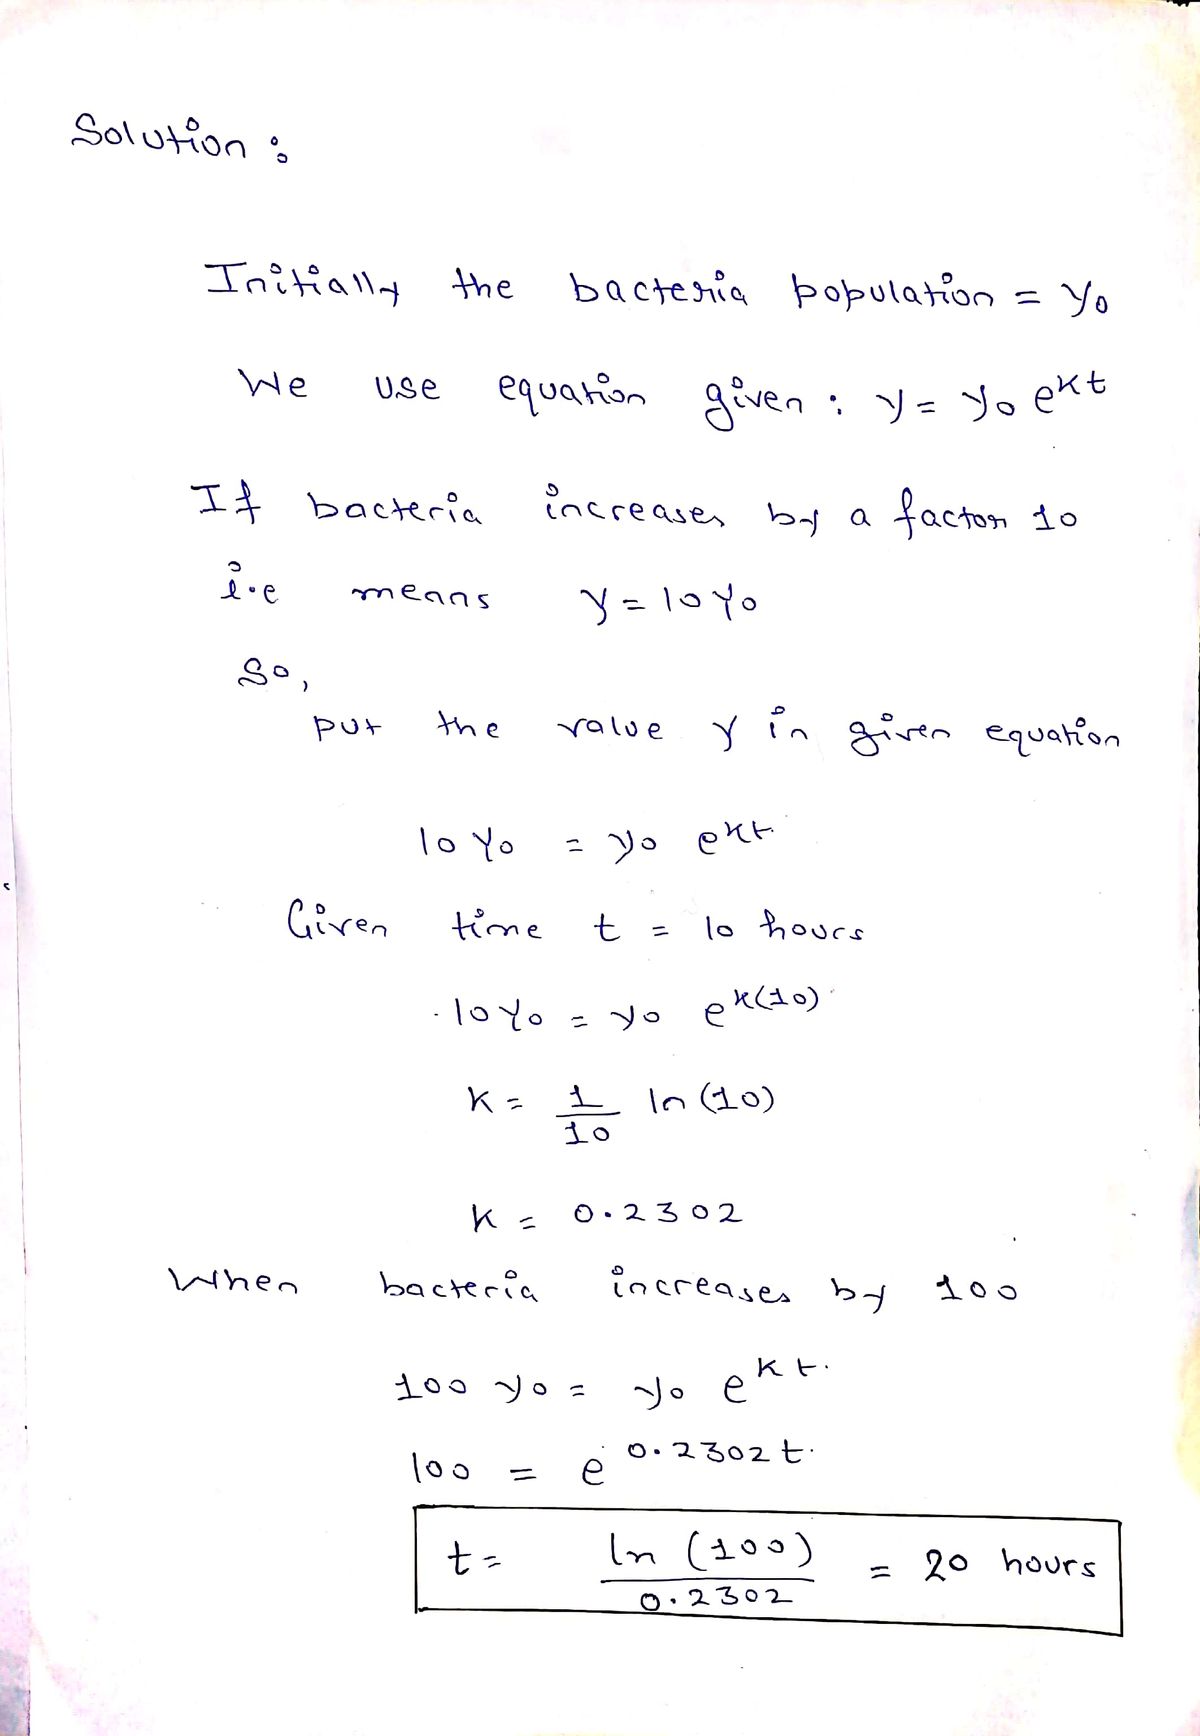 Solution :
Initially the bacteria population = y₀
We use equation given : y = y₀ e^kt
If bacteria increases by a factor 10
i.e means y = 10 y₀
So,
put the value y in given equation
10 y₀ = y₀ e^kt.
Given time t = 10 hours
10 y₀ = y₀ e^k(10)
K = 1/10 ln (10)
K = 0.2302
When bacteria increases by 100
100 y₀ = y₀ e^kt.
100 = e^0.2302 t.
t = ln (100)/0.2302 = 20 hours